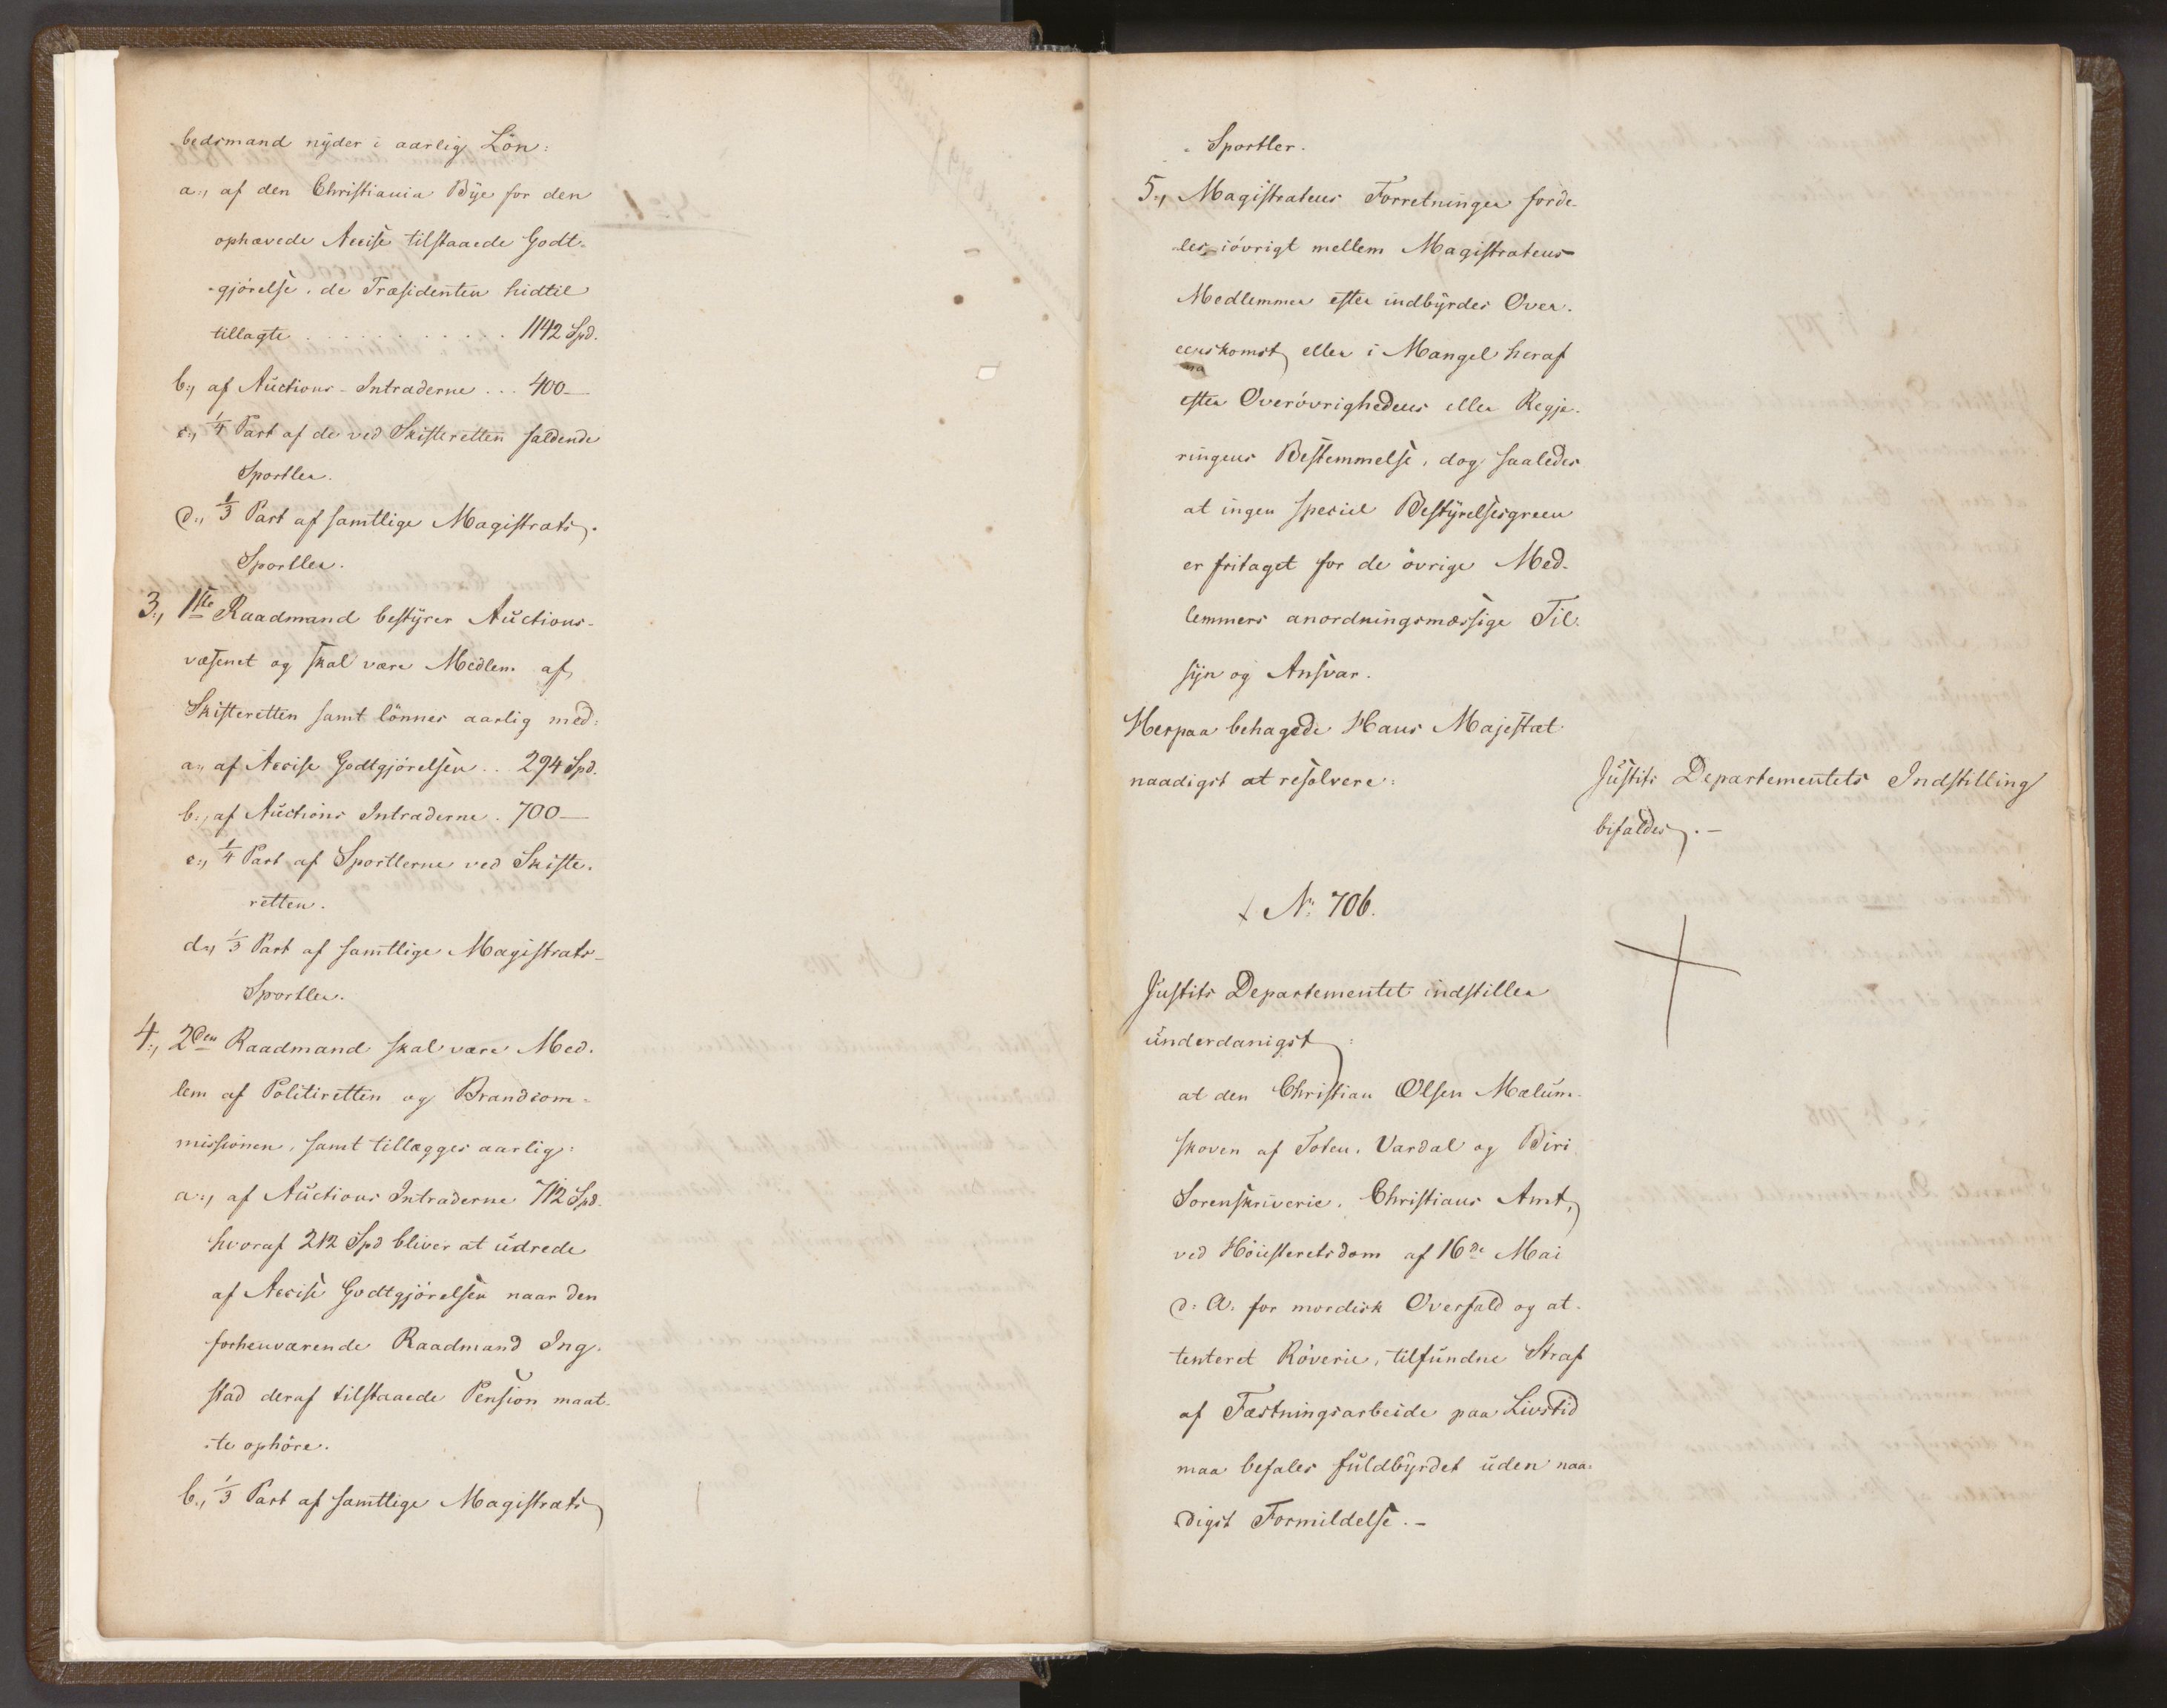 bedsmand nyder i aarlig Lön:
a., af den Christiania Bye for den
ophævede Accise tilstaaede Godt-
-gjörelse, de Præsidenten hidtil
tillagte . . . . . . . . . . . 1142 Spd.
b., af Auctions-Intraderne . . . 400 —
c., 1/4 Part af de ved Skifteretten faldende
Sportler.
d., 1/3 Part af samtlige Magistrats-
Sportler.
3., 1ste Raadmand bestyrer Auctions-
væsenet og skal være Medlem af
Skifteretten samt lönnes aarlig med:
a., af Accise Godtgjörelsen . . 294 Spd.
b., af Auctions Intraderne . 700 —
c., 1/4 Part af Sportlerne ved Skifte-
retten.
d., 1/3 Part af samtlige Magistrats-
Sportler.
4., 2den Raadmand skal være Med-
lem af Politiretten og Brandcom-
missionen, samt tillægges aarlig:
a., af Auctions Intraderne 712 Spd.
hvoraf 212 Spd bliver at udrede
af Accise Godtgjörelsen naar den
forhenværende Raadmand Ing-
stad deraf tilstaaede Pension maat-
-te ophöre.
b., 1/3 Part af samtlige Magistrats
Sportler.
5., Magistratens Forretninger forde-
les iövrigt mellem Magistratens
Medlemmer efter indbyrdes Over-
eenskomst eller i Mangel heraf
efter Overövrighedens eller Regje-
ringens Bestemmelse, dog saaledes
at ingen speciel Bestyrelsesgreen
er fritaget for de övrige Med-
lemmers anordningsmæssige Til-
syn og Ansvar.
Herpaa behagede Hans Majestæt
naadigst at resolvere:
Justits Departementets Indstilling
bifaldes. —
N: 706.
Justits Departementet indstiller
underdanigst:
at den Christian Olsen Mælum-
skoven af Toten, Vardal og Biri
Sorenskriverie, Christians Amt,
ved Höiesteretsdom af 16de Mai
d: A. for mordisk Overfald og at-
tenteret Röverie, tilfundne Straf
af Fæstningsarbeide paa Livstid
maa befales fuldbyrdet uden naa-
digst Formildelse. —